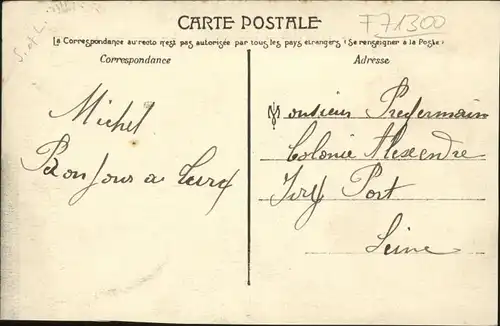 CARTE POSTALE
F71300
S. et L.
La Correspondance au recto n'est pas autorisée par tous les pays étrangers (Se renseigner à la Poste)
Correspondance
Adresse
Michel
Bonjour a
Monsieur Predermain
Colonie Alexendre
Ivry Port
Seine